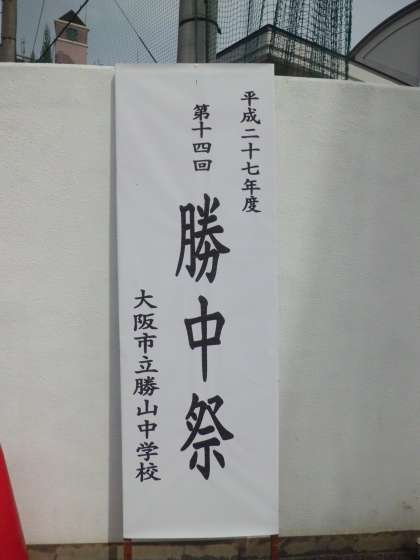 平成二十七年度
第十四回
勝中祭
大阪市立勝山中学校